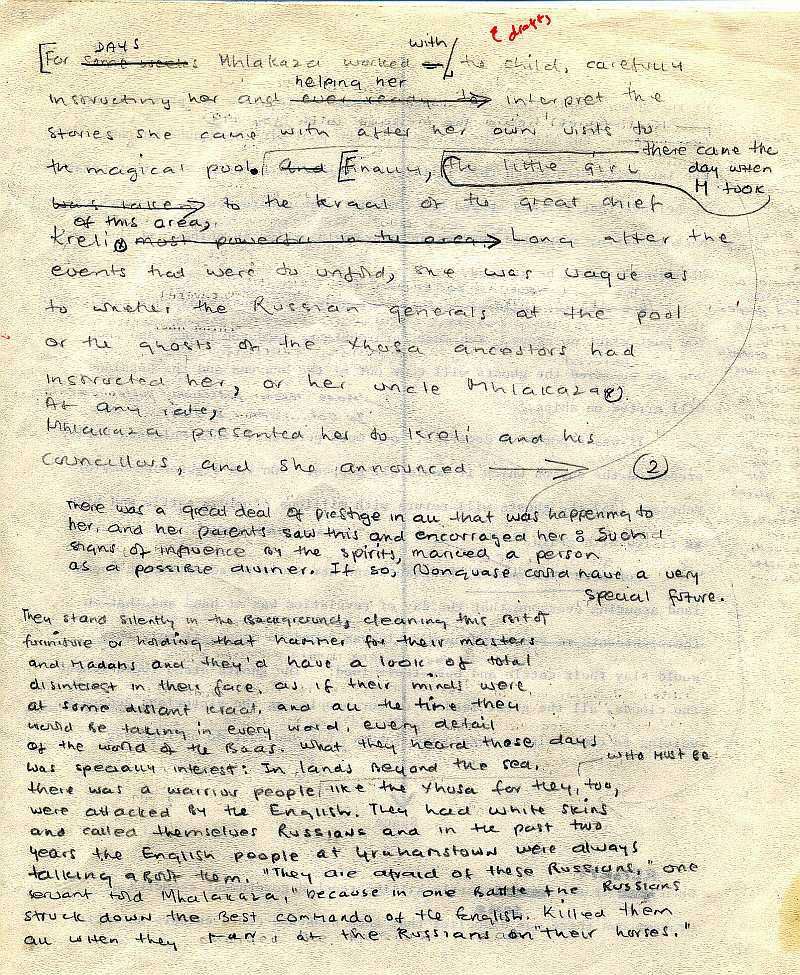 2 drafts
DAYS with
[For some weeks Mhlakaza worked the child, carefully
helping her
instructing her and ever ready to interpret the
stories she came with after her own visits to
the magical pool. And [Finally, the little girl there came the
day when
M took
was taken to the kraal of the great chief
of this area,
Kreli, most powerful in the area. Long after the
events had were to unfold, she was vague as
to whether the Russian generals at the pool
or the ghosts of the Xhosa ancestors had
instructed her, or her uncle Mhlakaza.
At any rate,
Mhlakaza presented her to Kreli and his
councillors, and she announced 2
There was a great deal of prestige in all that was happening to
her, and her parents saw this and encorraged her: Such
signs of influence by the spirits, marked a person
as a possible diviner. If so, Nonquase could have a very
special future.
They stand silently in the background, cleaning this bit of
furniture or holding that hammer for their masters
and Madams and they'd have a look of total
disinterest in their face, as if their minds were
at some distant kraal, and all the time they
would be taking in every word, every detail
of the world of the Baas. What they heard those days
was specially interest: In lands beyond the sea,
who must be
there was a warrior people like the Xhosa for they, too,
were attacked by the English. They had white skins
and called themselves Russians and in the past two
years the English people at Grahamstown were always
talking about them. "They are afraid of these Russians," one
servant told Mhalakaza, "because in one battle the Russians
struck down the best commando of the English. Killed them
all when they ran at the Russians on "their horses."